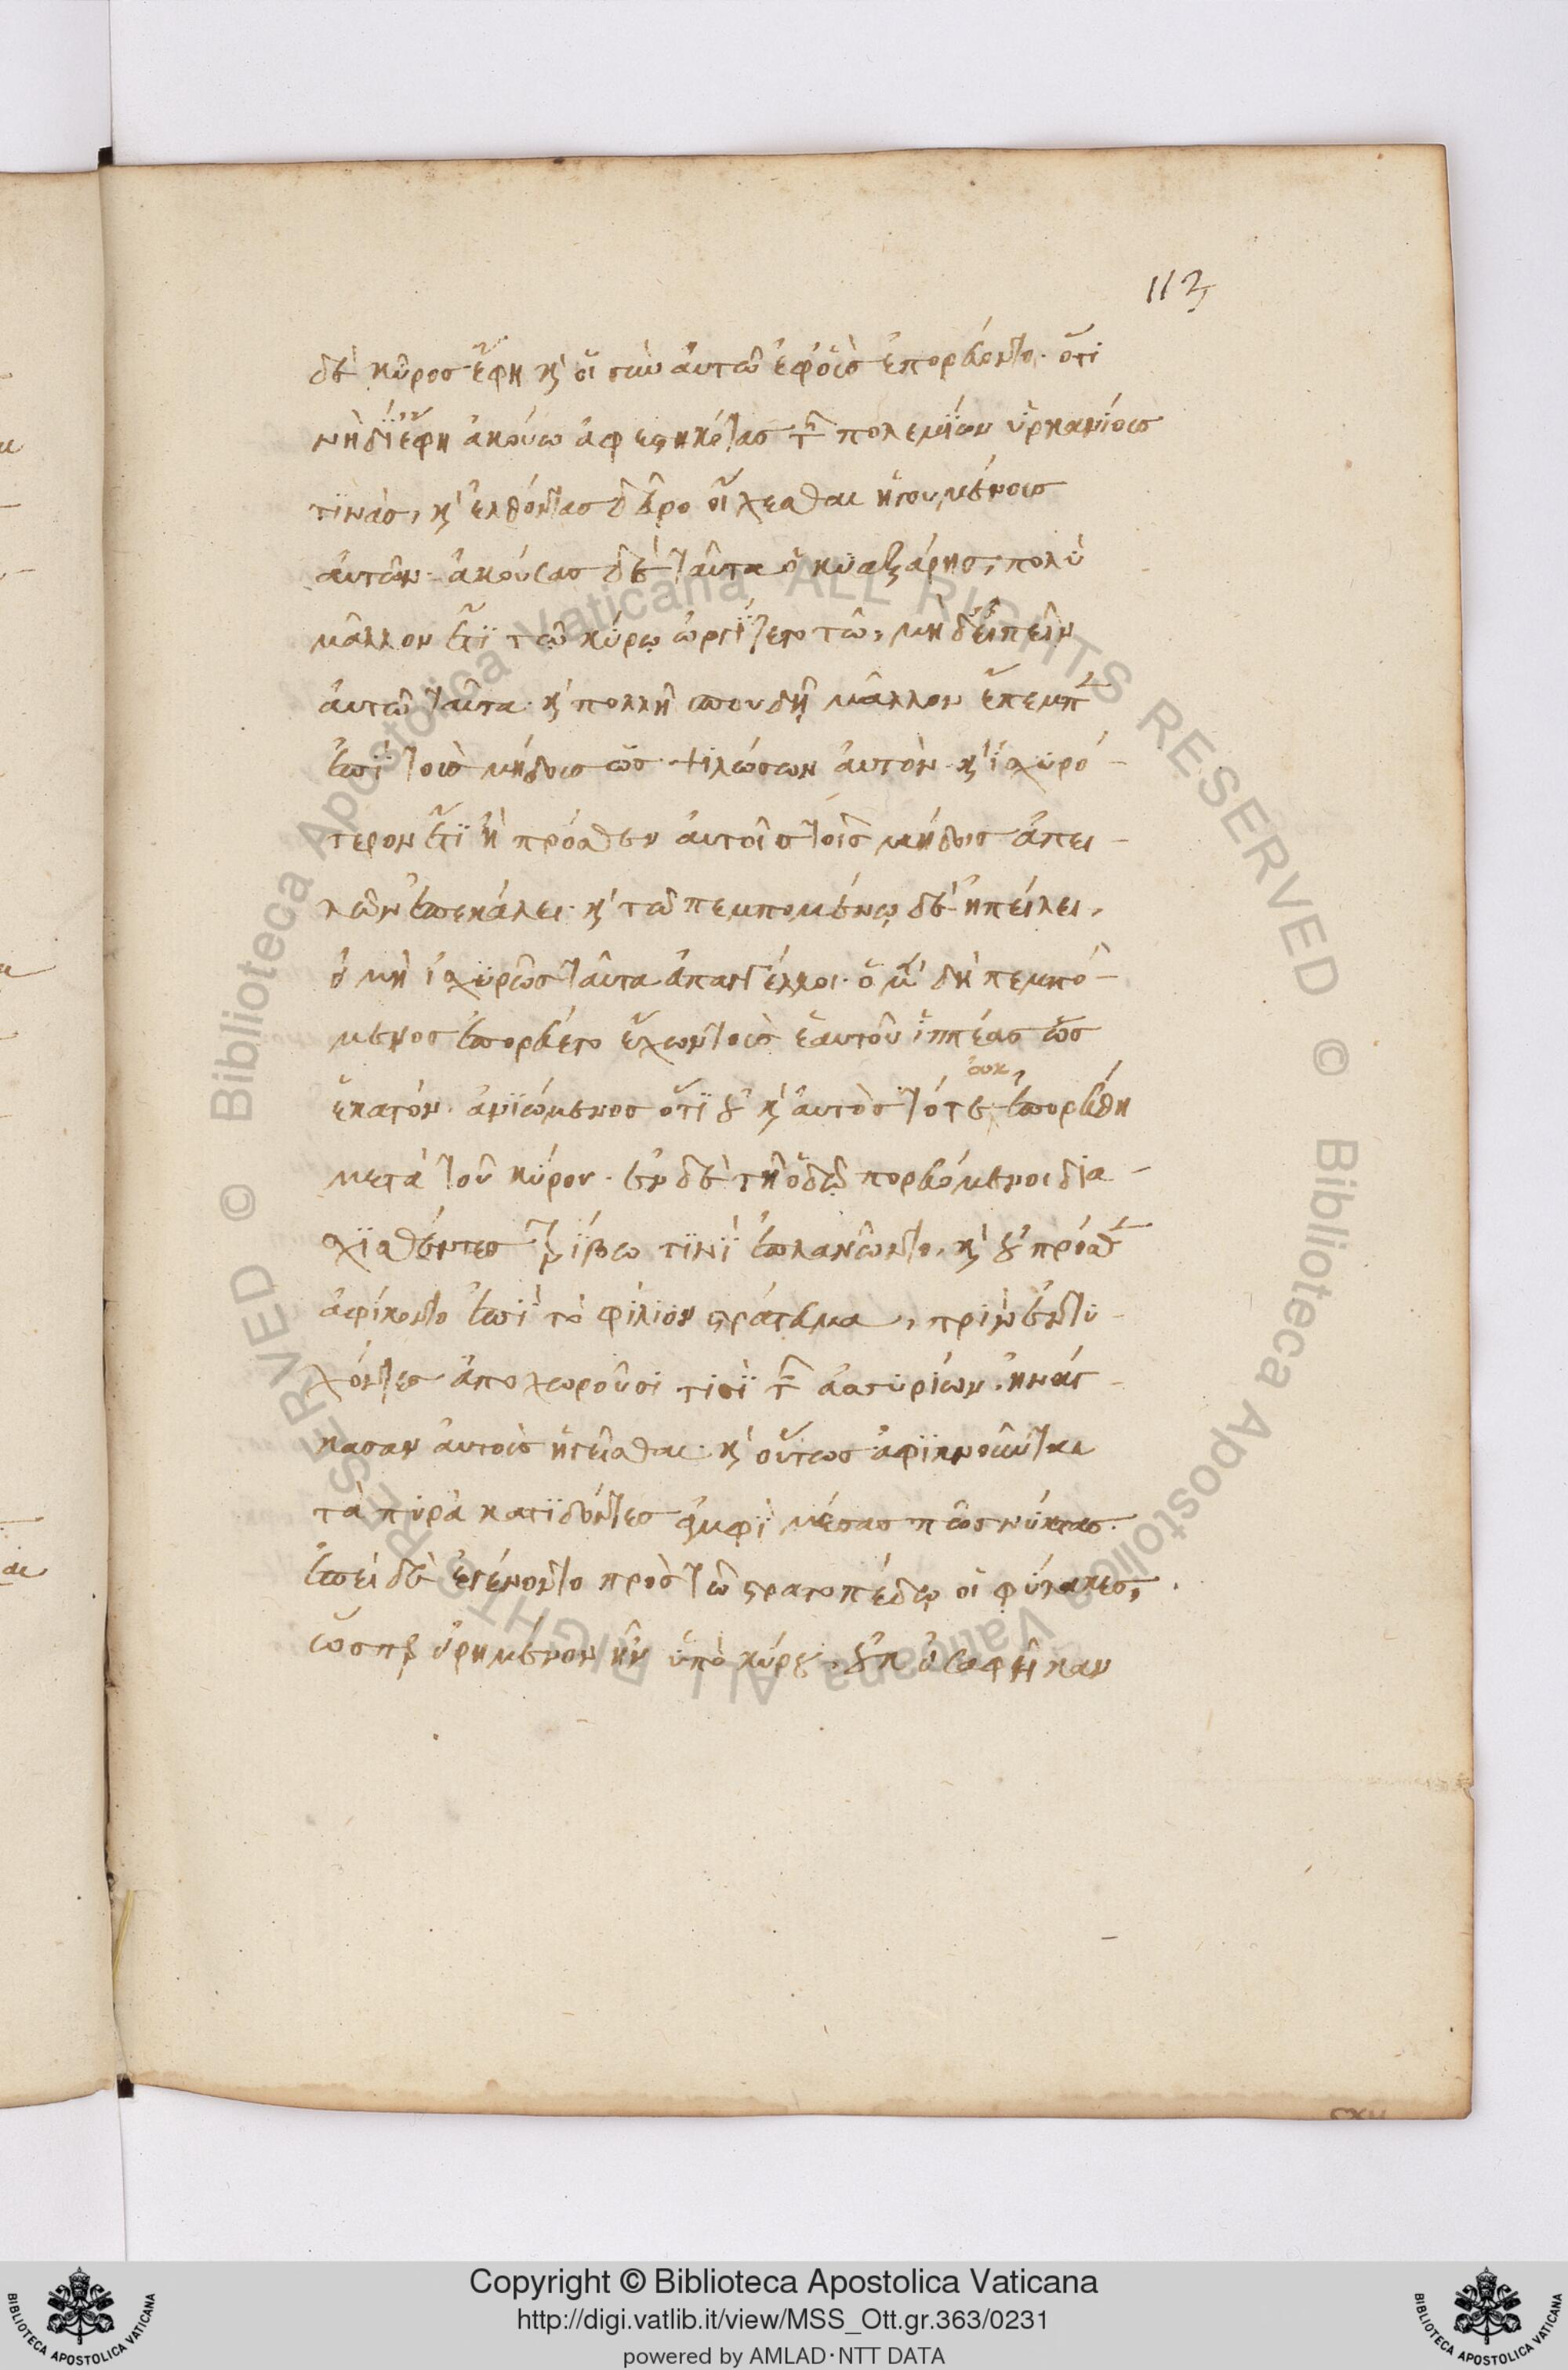 113
δὲ κῦρος ἔφη κ' οἱ σὺν αὐτῶ ἐφ' οἷς ἐπορεύοντο. ὅτι
νὴ δί' ἔφη ἀκούω ἀφεστηκότας τῶν πολεμίων ὑρκανίους
τινὰς, κ' ἐλθόντας δεῦρο οἴχεσθαι ἡγουμένους
αὐτῶν. ἀκούσας δὲ ταῦτα ὁ κυαξάρης, πολὺ
μᾶλλον ἔτι τῶ κύρῳ ὠργίζετο τῶ, μὴ δ' εἰπεῖν
αὐτῶ ταῦτα. κ' πολλῆ σπουδῆ μᾶλλον ἔπεμπεν
ἐπὶ τοὺς μήδους ὡς ψιλώσων αὐτὸν. κ' ἰσχυρό-
τερον ἔτι ἢ πρόσθεν αὐτοῖς τοῖς μήδοις ἀπει-
λῶν ἀπεκάλει. κ' τῶ πεμπομένῳ δὲ ἠπείλει,
εἰ μὴ ἰσχυρῶς ταῦτα ἀπαγγέλλοι. ὁ μὲν δὴ πεμπό-
μενος ἐπορεύετο ἔχων τοὺς ἑαυτοῦ ἱππέας ὡς
ἑκατόν. ἀνιώμενος ὅτι οὐ κ' αὐτὸς τότε ἐπορεύθη
οὐκ
μετὰ τοῦ κύρου. ἐν δὲ τῆ ὁδῷ πορευόμενοι δια-
σχισθέντες τρίβω τινὶ ἐπλανῶντο. κ' οὐ πρόσθεν
ἀφίκοντο ἐπὶ τὸ φίλιον στράτευμα, πρὶν ἐντυ-
χόντες ἀποχωροῦσί τισι τῶν ἀσσυρίων. ἠνάγ-
κασαν αὐτοὺς ἡγεῖσθαι. κ' οὕτως ἀφικνοῦνται
τὰ πυρὰ κατιδόντες ἀμφὶ μέσας πως νύκτας.
ἐπεὶ δὲ ἐγένοντο πρὸς τῶ στρατοπέδῳ οἱ φύλακες,
ὥσπερ εἰρημένον ἦν ὑπὸ κύρου, οὐκ εἰσαφῆκαν
Copyright © Biblioteca Apostolica Vaticana
http://digi.vatlib.it/view/MSS_Ott.gr.363/0231
powered by AMLAD·NTT DATA